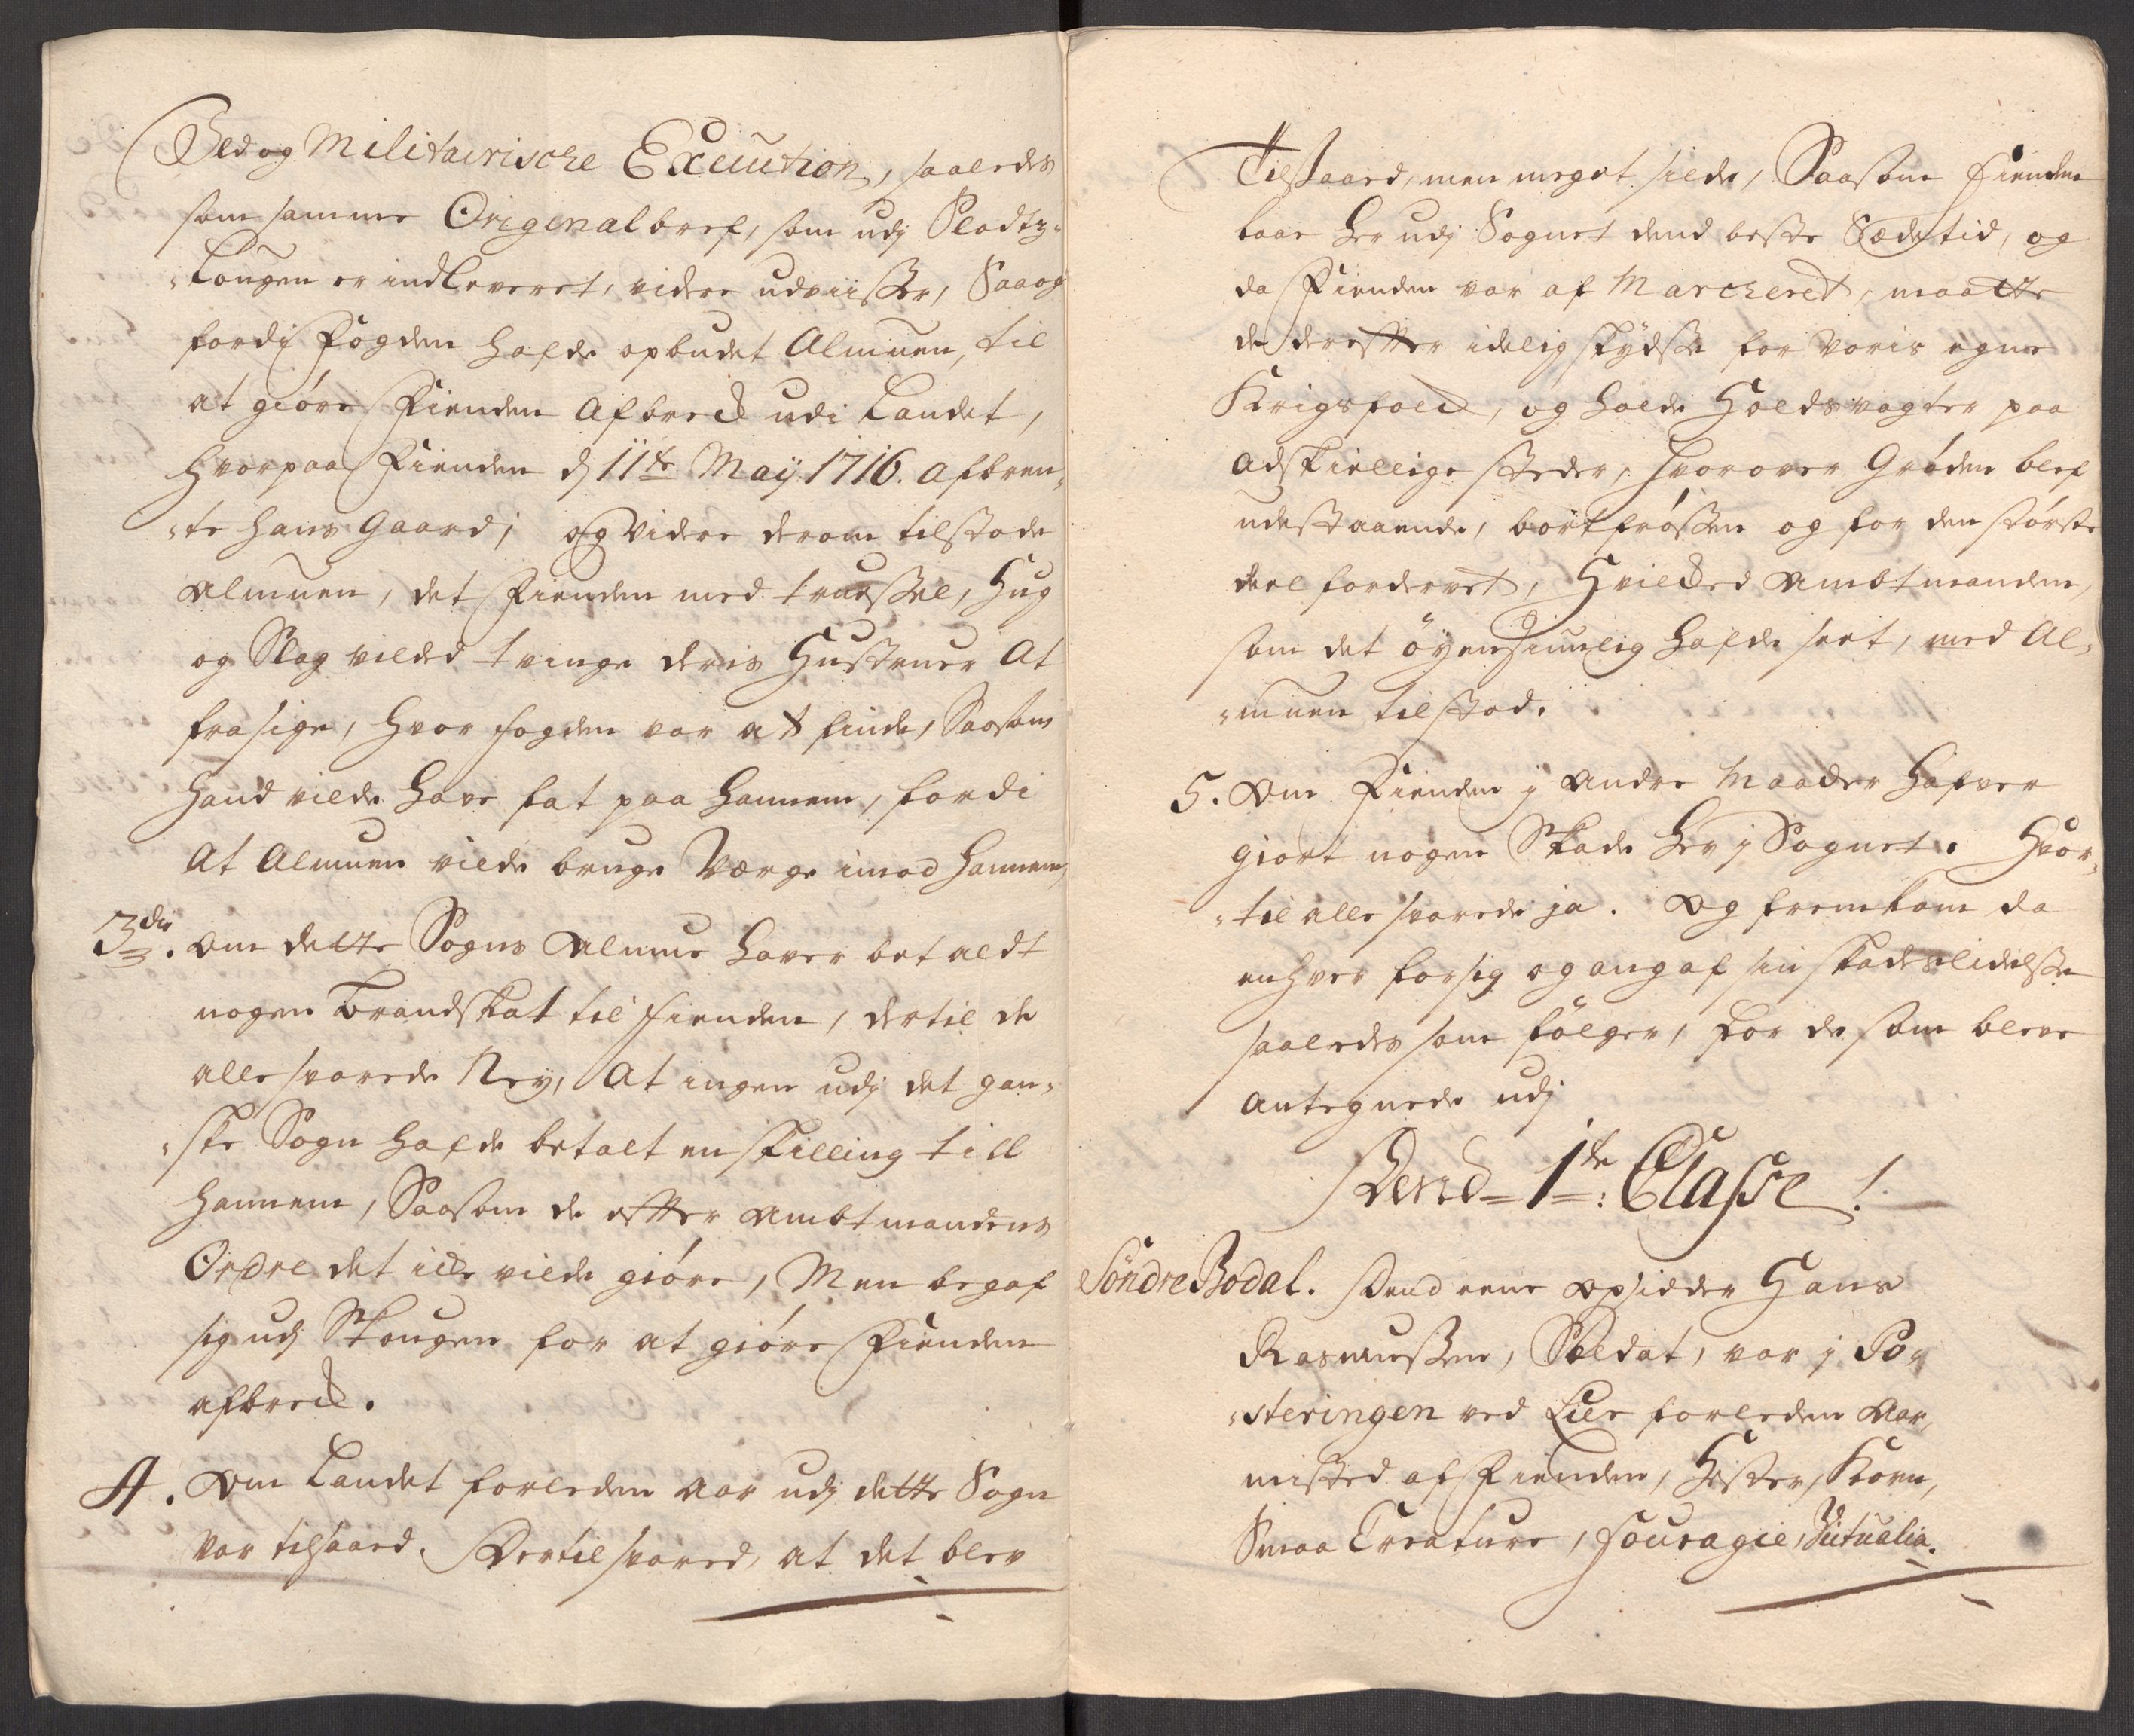 Ild og Militairische Execution, saaledes
som samme Origenal bref, som udj Slodtz-
Lougen er indleveret, videre udviisser, Saa og
fordj Fogden hafde opbudet Almuen, til
at giøre Fienden Afbreck udi Landet,
hvorpaa Fienden d 11te Maij 1716. afbren-
-te hans Gaard; og Videre derom tilstode
Almuen, det Fienden med trudssel, Hug
og Slag vilded tvinge deris Hustruer At
fra sige, hvor fogden var at finde, Saasom
hand vilde have fat paa hannem, fordi
At Almuen vilde bruge Værge imod hannem,
3die. Om dette Sogns Almue haver betaldt
nogen Brandskat til Fienden, dertil de
alle svarede Ney, At ingen udj det gan-
-ske Sogn hafde betalt en skilling till
hannem, Saasom de effter Ambtmandens
Ordre det icke vilde giøre, Men begaf
sig udj Skougen for at giøre Fienden
afbreck.
4. Om Landet forleden Aar udj dette Sogn
var tilsaaed. Dertil svared, at det blev
Tilsaaed, men meget silde, Saasom Fienden
laae her udj Sognet dend beste Sædetid, og
da Fienden var af Marcheret, maatte
de dereffter idelig skydsse for Voris egne
Krigsfolck, og holde Holdsvagter paa
Adskiellige steder, hvorover Grøden blef
udestaaende, bortfrøssen og for den største
deel fordervet, Hvilcked Ambtmanden,
som det øyensiunlig hafde seet, med Al-
-muen tilstod.
5. Om Fienden j andre Maader hafver
giort nogen Skade her j Sognet. Hvor-
-til alle svarede ja. Og fremkom da
enhver for sig og angaf sin skadeslidelsse
saaledes som følger, for de som bleve
Antegnede udj
Dend 1te: Classe!
Söndre Bodal. Dend eene Opsidder Hans
Rasmussen, Soldat, var j Po-
-steringen ved Lier forleden Aar,
misted af Fienden, Hester, Korn,
Smaa Creature, fouragie, Victualia.